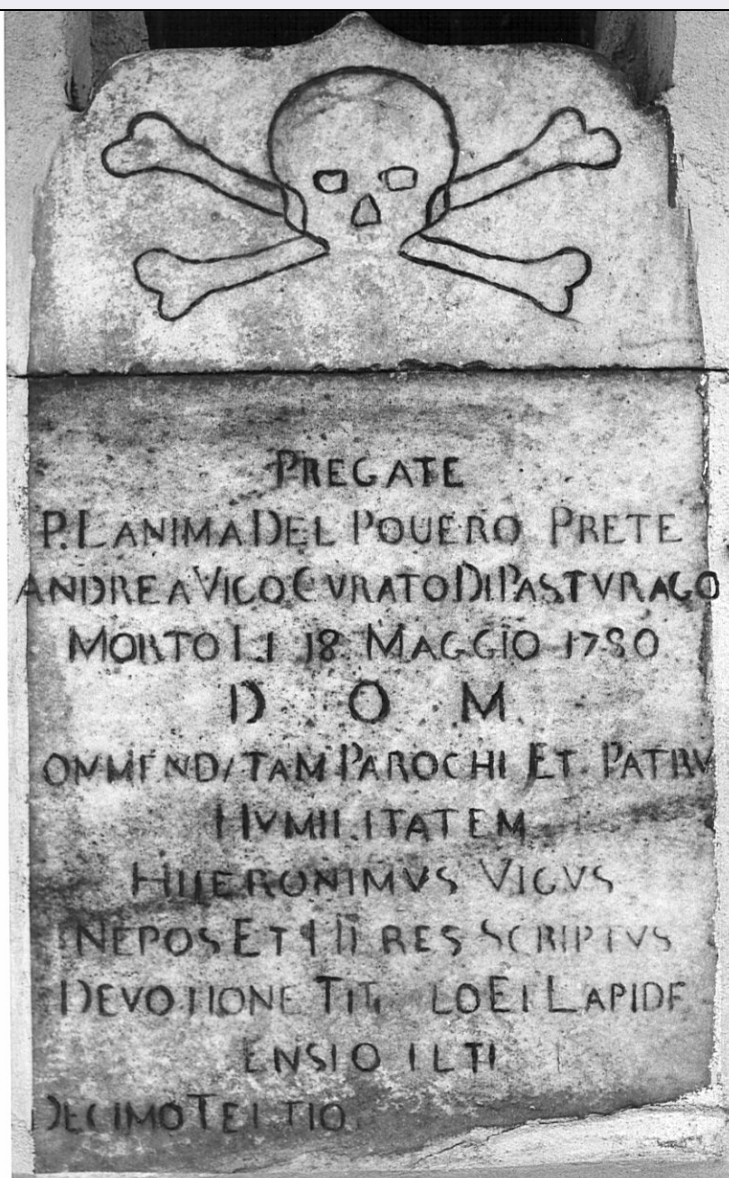 PREGATE
P. LANIMA DEL POUERO PRETE
ANDREA VICO CVRATO DI PASTVRAGO
MORTO LI 18 MAGGIO 1780
D O M
PAROCHI ET PATRV
HVMILITATEM
HIIERONIMVS VICVS
NEPOS ET HERES SCRIPTVS
DEVOTIONE LAPIDE
DECIMO